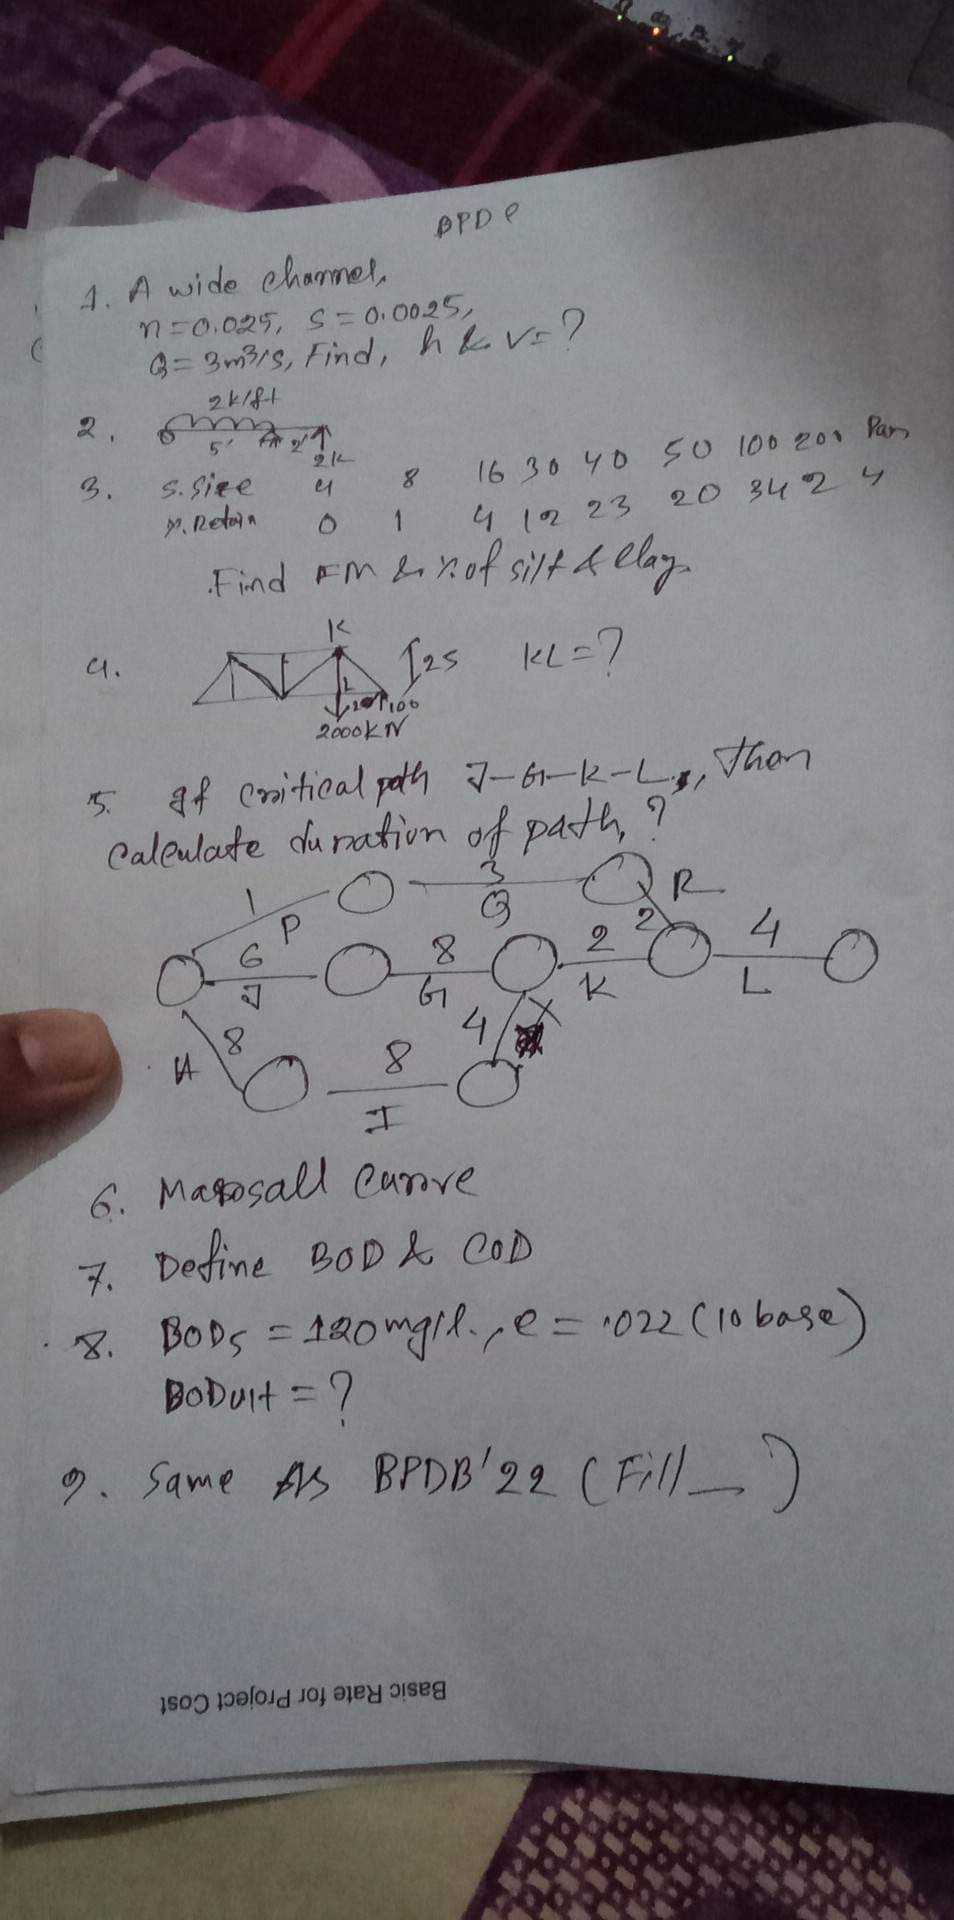 BPD
1. A wide channel,
n=0.025, s=0.0025,
Q=3m³/s, Find, h & v=?
2k/ft
2.
5' 2'
2k
3. S.size 4 8 16 30 40 50 100 200 Pan
%. Retain 0 1 4 12 23 20 34 2 4
Find FM & %.of silt & Clay.
K
4. 25 KL=?
L
100
2000KN
5. If critical path J-G-K-L, then
Calculate duration of path,?
1 3 R
P Q
6 8 2 2 4
J G K L
8 4 X
H 8
I
6. Marsall Curve
7. Define BOD & COD
8. BOD5 = 120mg/l., e = .022 (10 base)
BODult = ?
9. Same As BPDB'22 (Fill_)
Basic Rate for Project Cost